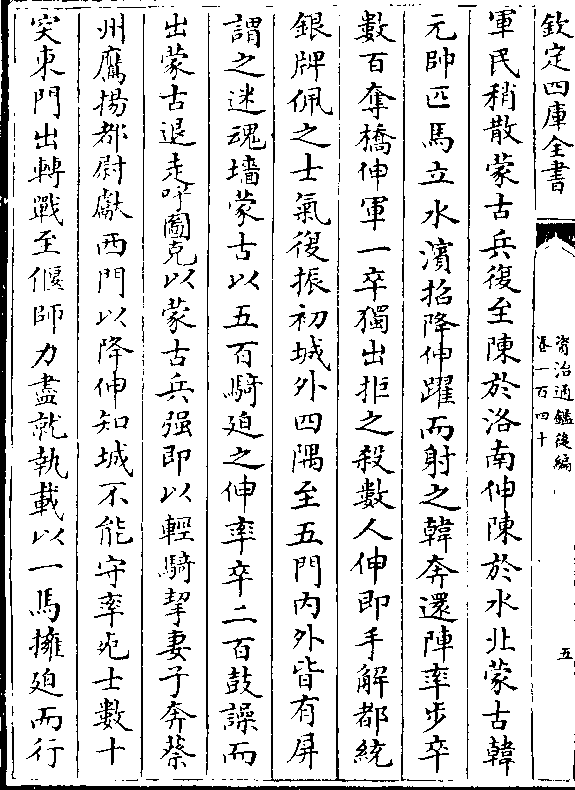 欽定四庫全書
資治通鑑後編
卷一百四十
五
軍民稍散蒙古兵復至陳於洛南伸陳於水北蒙古韓
元帥匹馬立水濱招降伸躍而射之韓奔還陣率步卒
數百奪橋伸軍一卒獨出拒之殺數人伸即手解都統
銀牌佩之士氣復振初城外四隅至五門內外皆有屏
謂之迷魂墻蒙古以五百騎廹之伸率卒二百鼓譟而
出蒙古退走呼圖克以蒙古兵强即以輕騎挈妻子奔蔡
州鷹揚都尉獻西門以降伸知城不能守率死士數十
突東門出轉戰至偃師力盡就執載以一馬擁廹而行